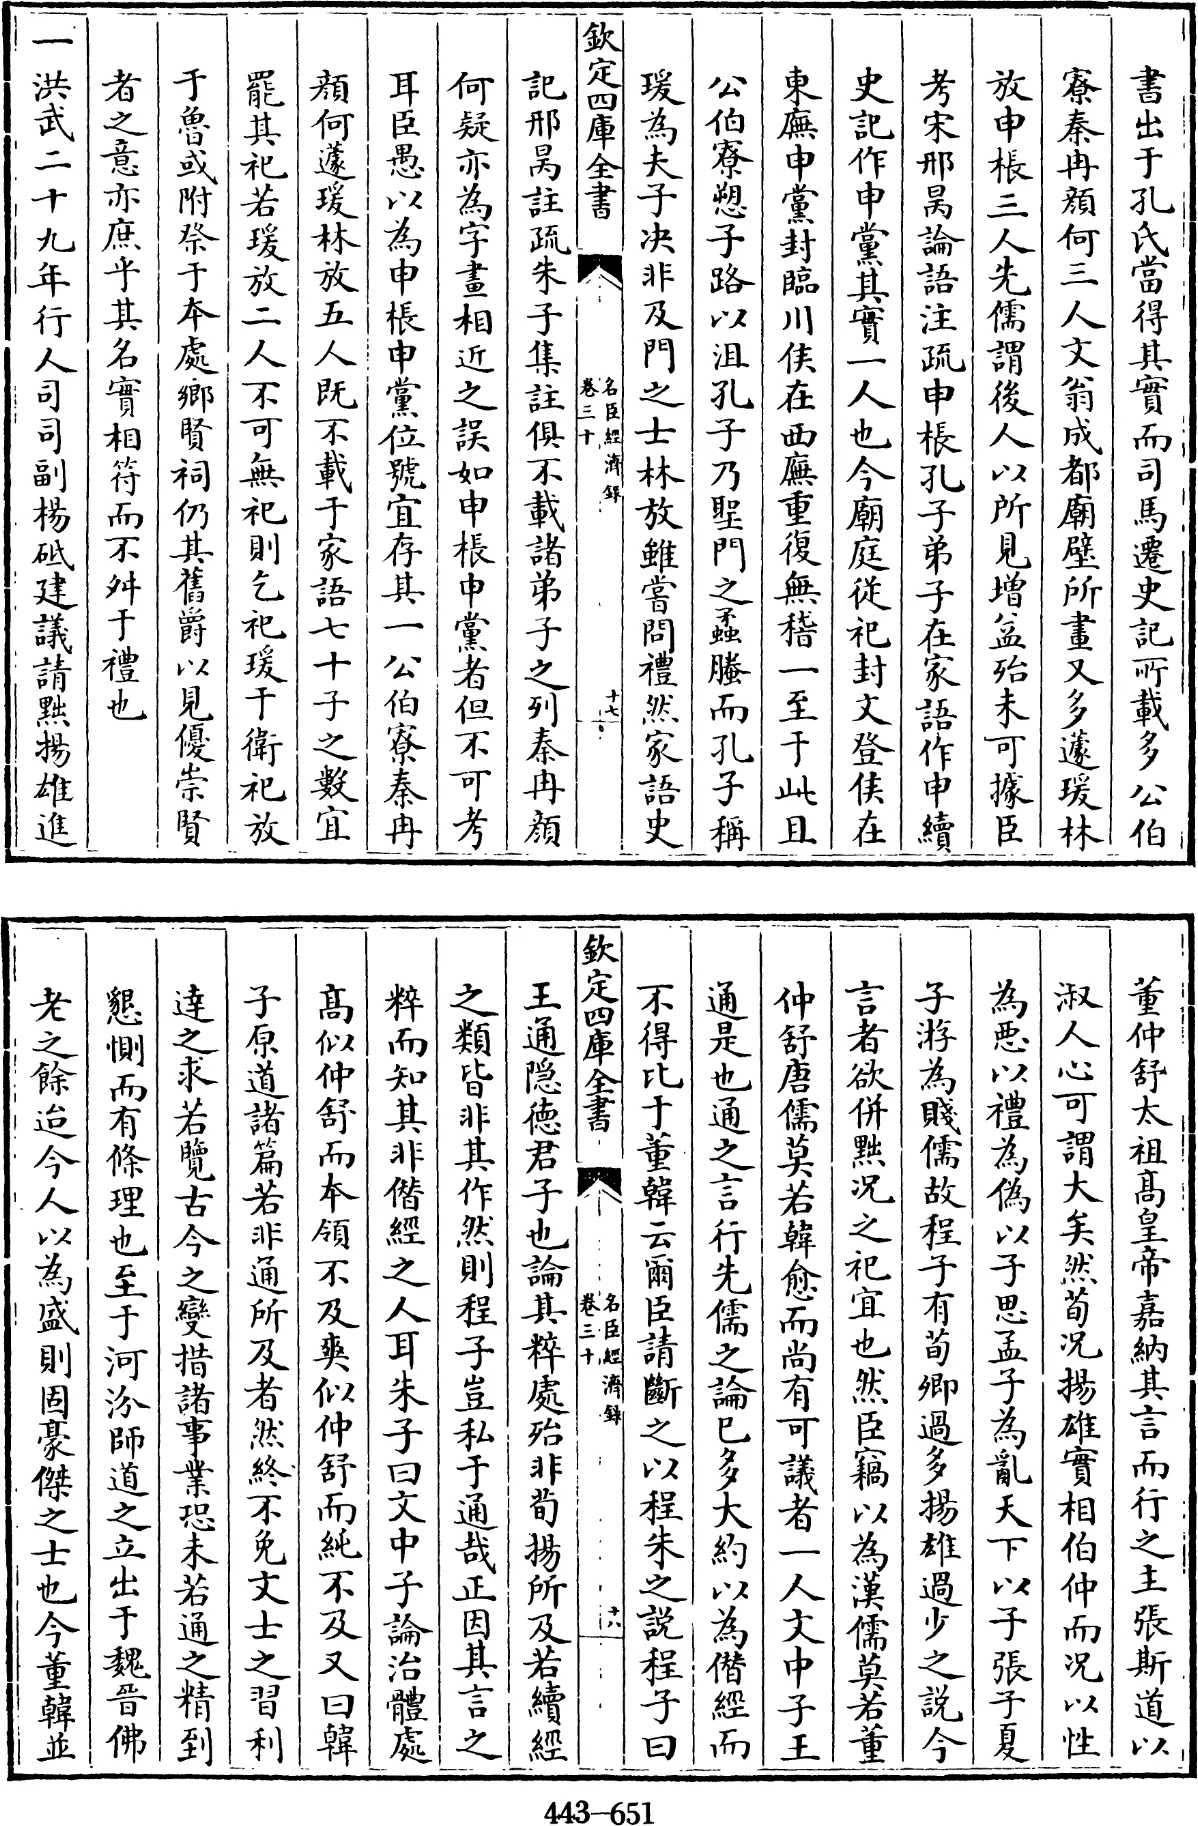 書出于孔氏當得其實而司馬遷史記所載多公伯
寮秦冉顏何三人文翁成都廟壁所畫又多蘧瑗林
放申棖三人先儒謂後人以所見增益殆未可據臣
考宋邢昺論語注疏申棖孔子弟子在家語作申續
史記作申黨其實一人也今廟庭從祀封文登侯在
東廡申黨封臨川侯在西廡重復無稽一至于此且
公伯寮愬子路以沮孔子乃聖門之蟊螣而孔子稱
瑗為夫子決非及門之士林放雖嘗問禮然家語史
欽定四庫全書
名臣經濟錄
卷三十
十七
記邢昺註疏朱子集註俱不載諸弟子之列秦冉顏
何疑亦為字畫相近之誤如申棖申黨者但不可考
耳臣愚以為申棖申黨位號宜存其一公伯寮秦冉
顏何蘧瑗林放五人既不載于家語七十子之數宜
罷其祀若瑗放二人不可無祀則乞祀瑗于衛祀放
于魯或附祭于本處鄉賢祠仍其舊爵以見優崇賢
者之意亦庶乎其名實相符而不舛于禮也
一洪武二十九年行人司司副楊砥建議請黜揚雄進
董仲舒太祖髙皇帝嘉納其言而行之主張斯道以
淑人心可謂大矣然荀况揚雄實相伯仲而况以性
為惡以禮為偽以子思孟子為亂天下以子張子夏
子游為賤儒故程子有荀卿過多揚雄過少之說今
言者欲併黜况之祀宜也然臣竊以為漢儒莫若董
仲舒唐儒莫若韓愈而尚有可議者一人文中子王
通是也通之言行先儒之論已多大約以為僭經而
不得比于董韓云爾臣請斷之以程朱之説程子曰
欽定四庫全書
名臣經濟錄
卷三十
十八
王通隱德君子也論其粹處殆非荀揚所及若續經
之類皆非其作然則程子豈私于通哉正因其言之
粹而知其非僭經之人耳朱子曰文中子論治體處
髙似仲舒而本領不及爽似仲舒而純不及又曰韓
子原道諸篇若非通所及者然終不免文士之習利
達之求若覽古今之變措諸事業恐未若通之精到
懇惻而有條理也至于河汾師道之立出于魏晉佛
老之餘迨今人以為盛則固豪傑之士也今董韓並
443-651